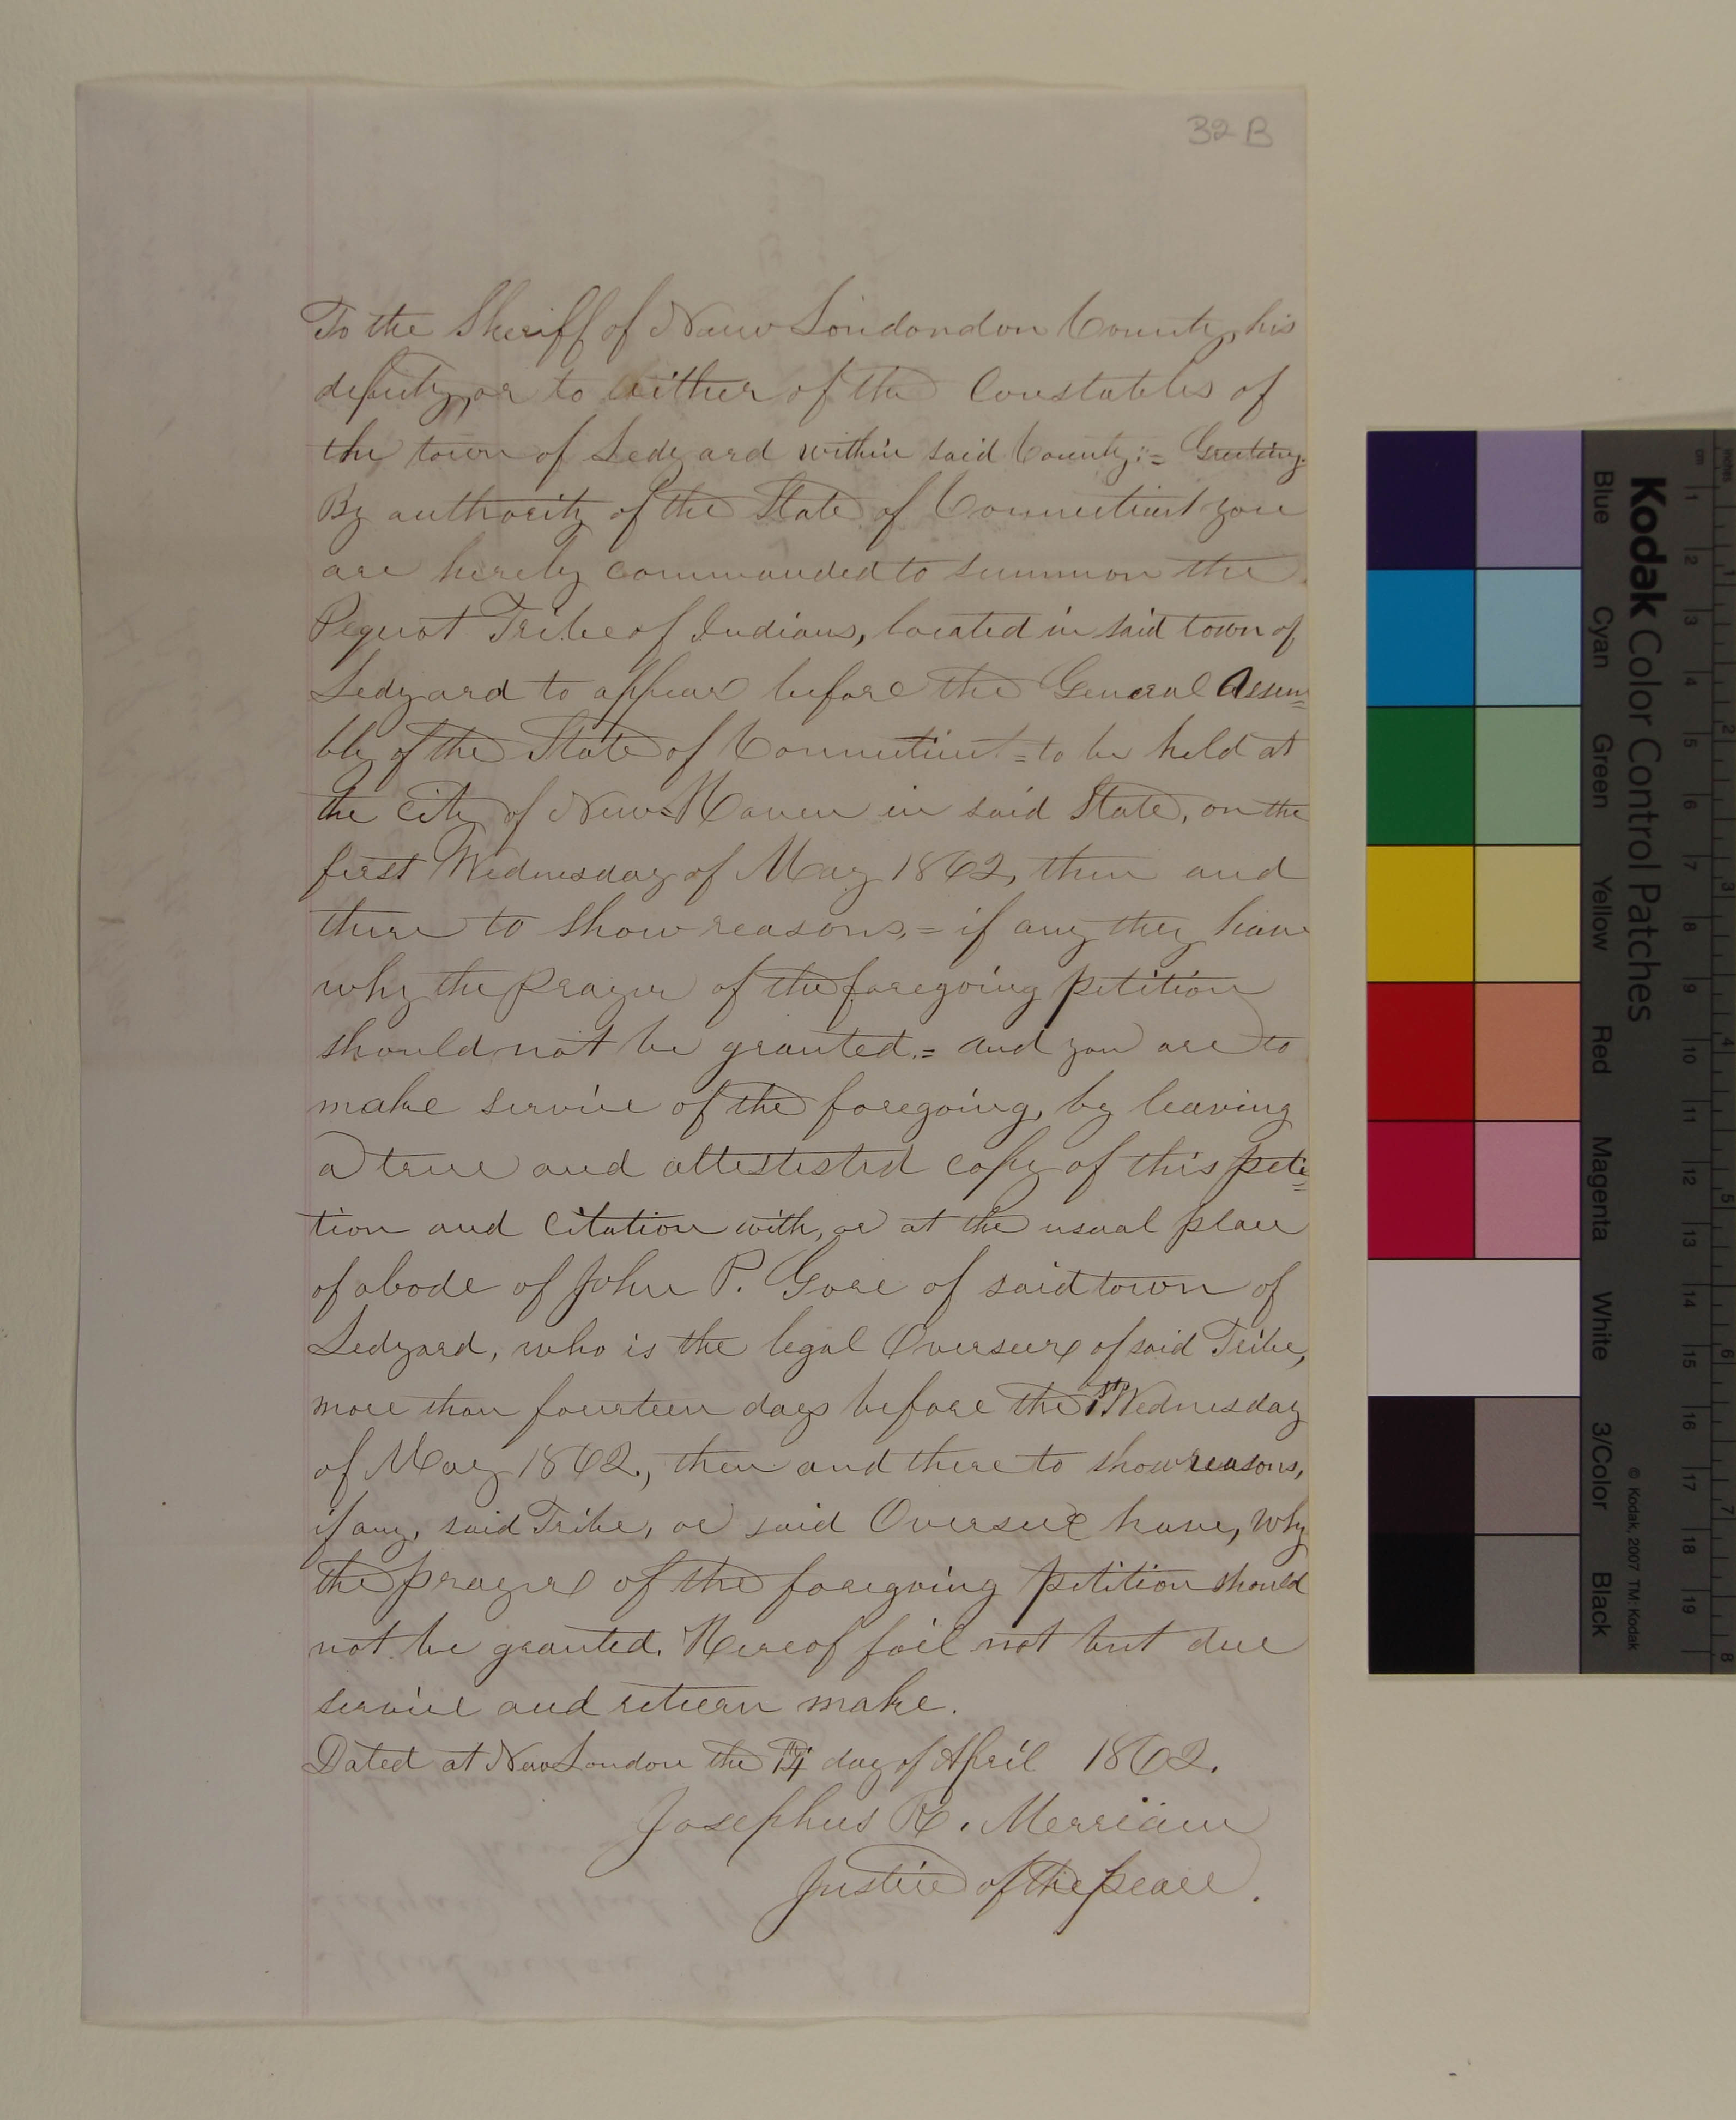 32 B
To the Sheriff of New Loindondon County, his
deputy, or to either of the Constables of
the town of Ledyard within said County:= Greeting.
By authority of the State of Connecticut you
are hereby commanded to summon the
Pequot Tribe of Indians, located in said town of
Ledyard to appear before the General Assem=
bly of the State of Connecticut = to be held at
the City of New=Haven in said State, on the
first Wednesday of May 1862, then and
there to show reasons,= if any they have
why the prayer of the foregoing petition
should not be granted.= and you are to
make service of the foregoing, by leaving
a true and attestested copy of this peti=
tion and citation with, or at the usual place
of abode of John P. Gore of said town of
Ledyard, who is the legal Overseer of said Tribe,
more than fourteen days before the 1st Wednesday
of May 1862., then and there to show reasons,
if any, said Tribe, or said Overseer have, why
the prayer of the foregoing petition should
not be granted. Hereof fail not but due
service and return make.
Dated at New London the 14th day of April 1862.
Josephus R. Merriam
Justice of the peace.
Kodak Color Control Patches
Blue Cyan Green Yellow Red Magenta White 3/Color Black
© Kodak, 2007 TM: Kodak
inches 1 2 3 4 5 6 7 8
cm 1 2 3 4 5 6 7 8 9 10 11 12 13 14 15 16 17 18 19